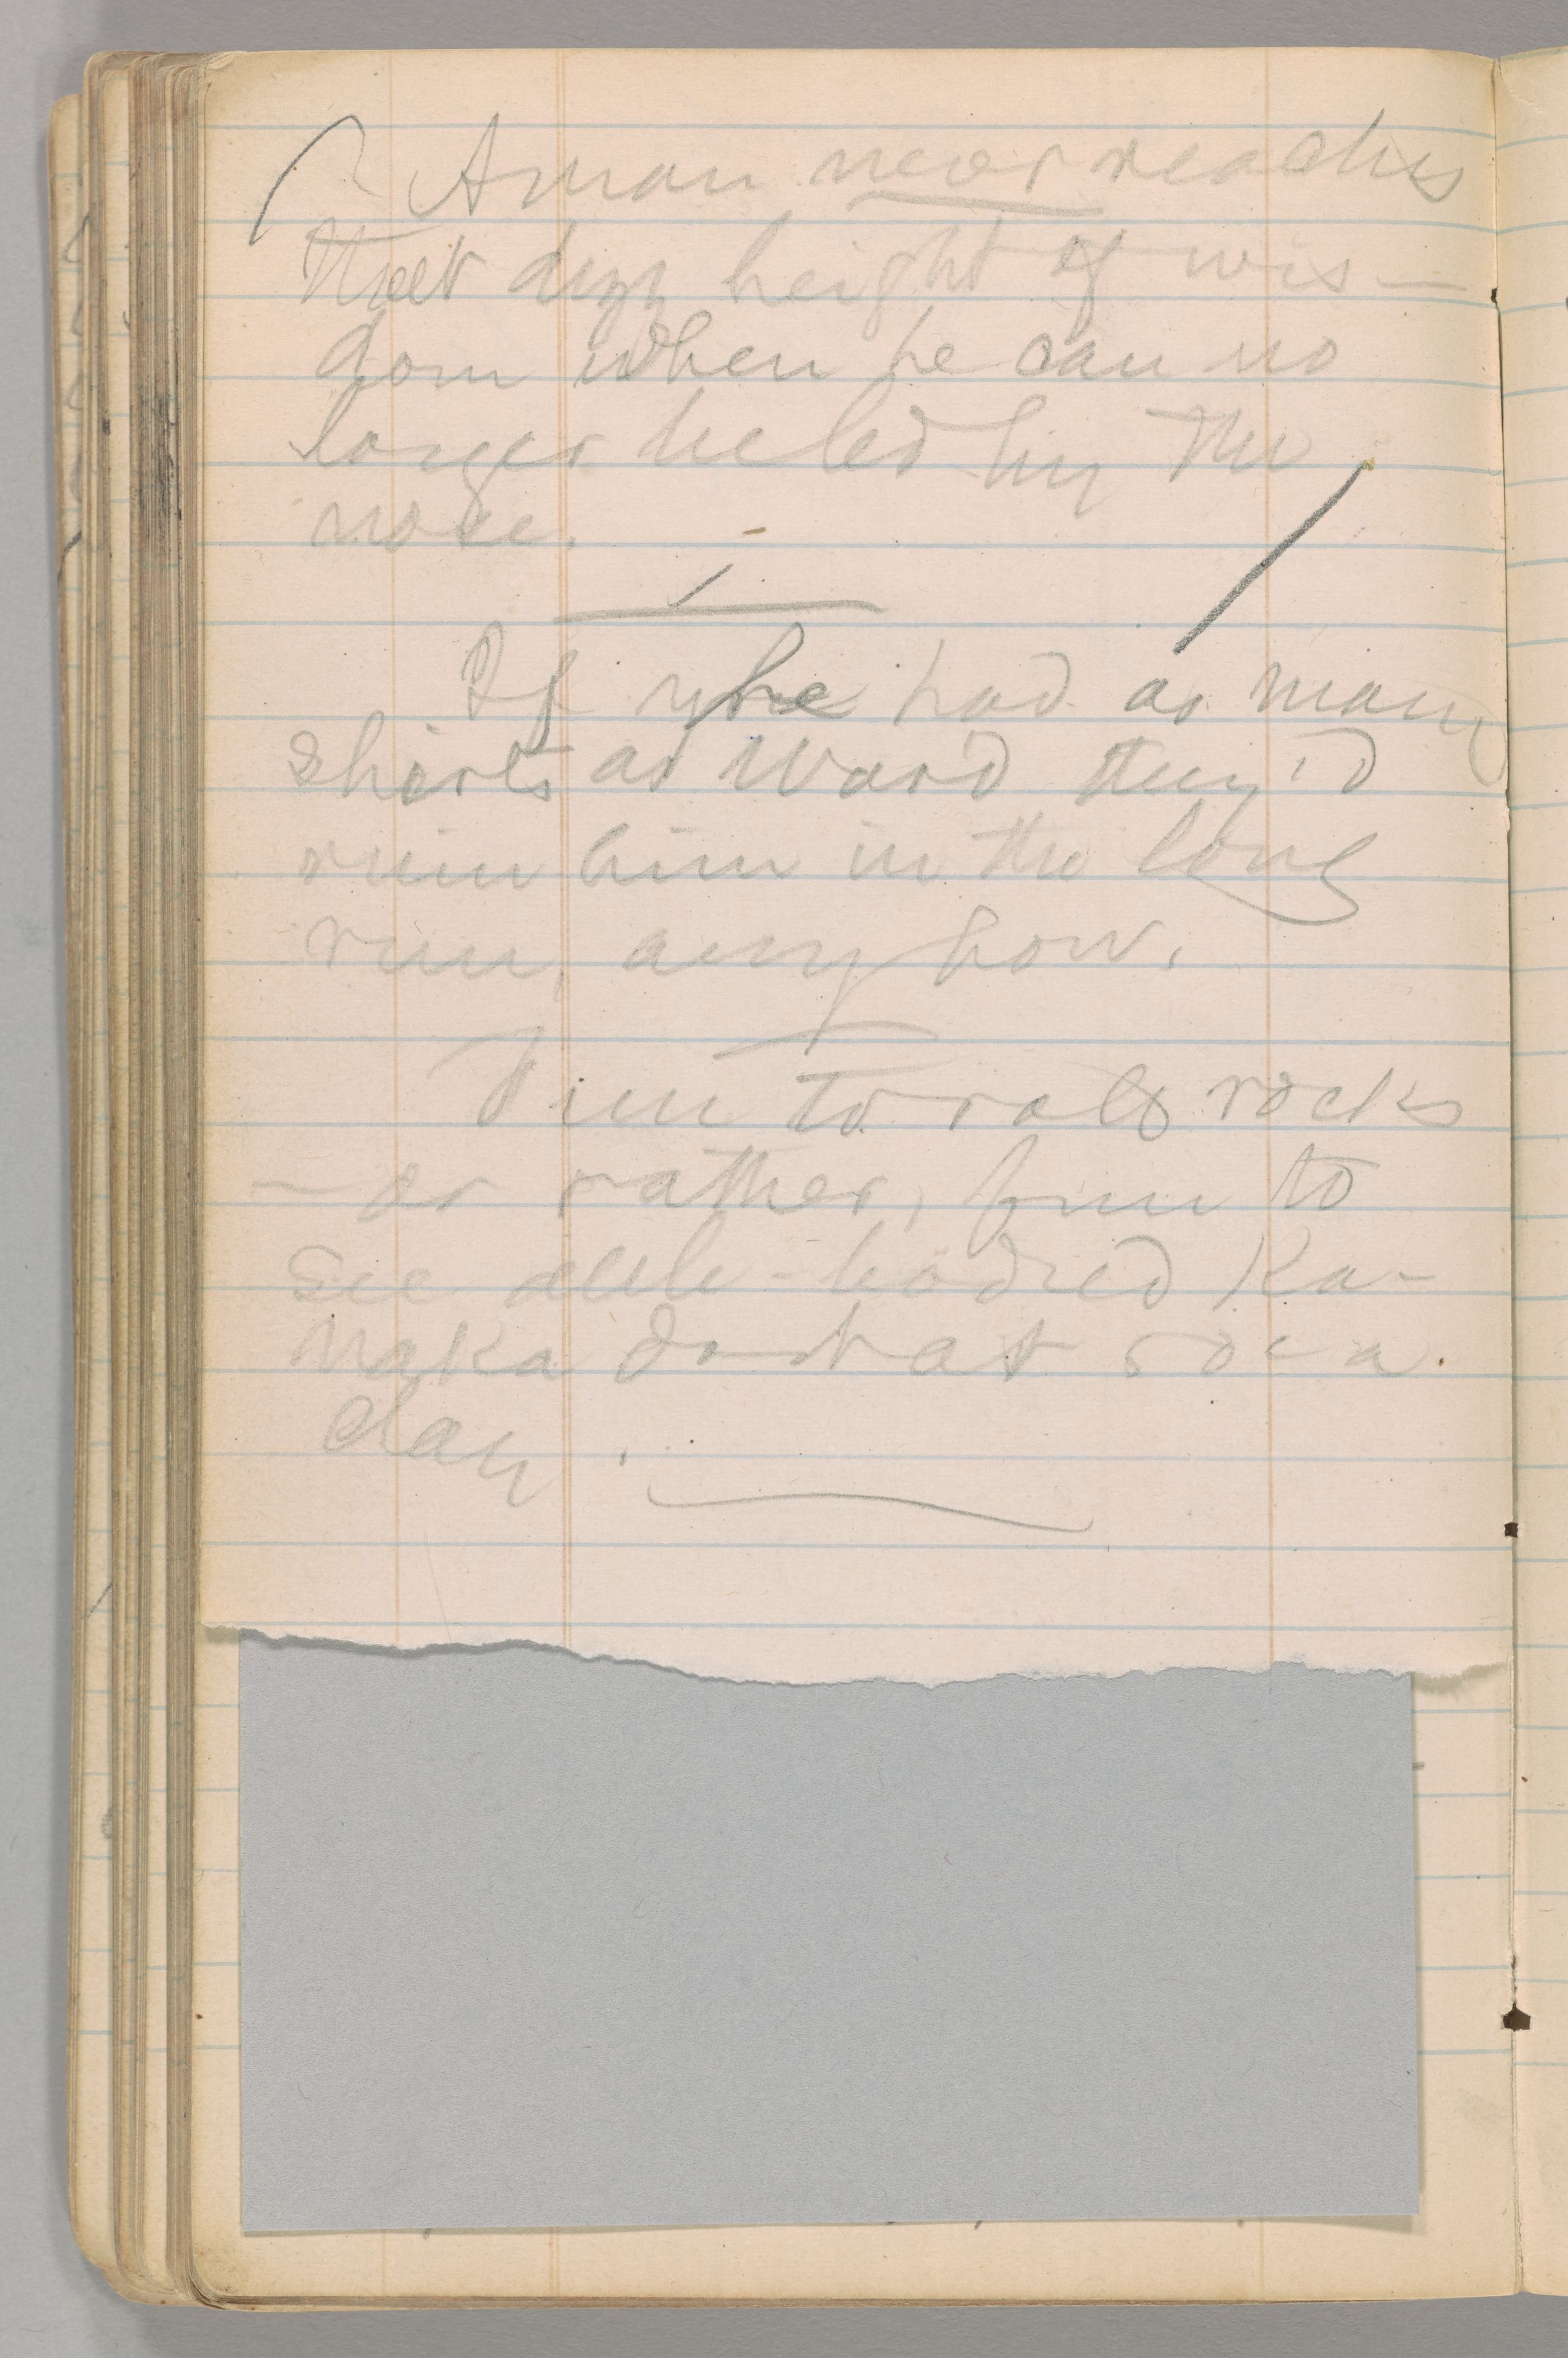 A man never reaches
that dizzy height of wis-
dom when he can no
longer be led by the
nose.
If he had as many
shirts as Ward they'd
ruin him in the long
run, anyhow.
Fun to roll rocks
—or rather, fun to
see able-bodied Ka-
naka do it at 50c a
day.